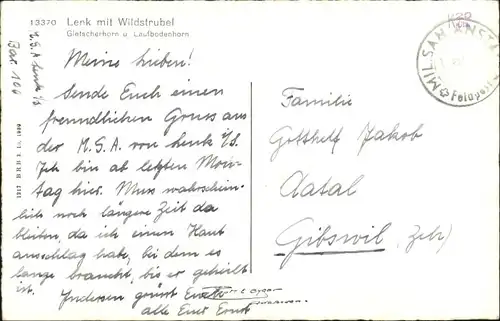 13370 Lenk mit Wildstrubel
Gletscherhorn u. Laufbodenhorn
M.S.A Lenk i/S
Bar. 100
Meine Lieben!
Sende Euch einen
freundlichen Gruss aus
der M.S.A. von Lenk i/S.
Ich bin ab letzten Mon-
tag hier. Muss wahrschein-
lich noch längere Zeit da
bleiben, da ich einen Haut
anschlag habe, bei dem es
lange braucht, bis er geheilt
ist. Indessen grüsst Euch
alle Euer Ernst
MIL. SAN. ANST
Feldpost
Familie
Gotthelf Jakob
Aatal
Gibswil (Zch)